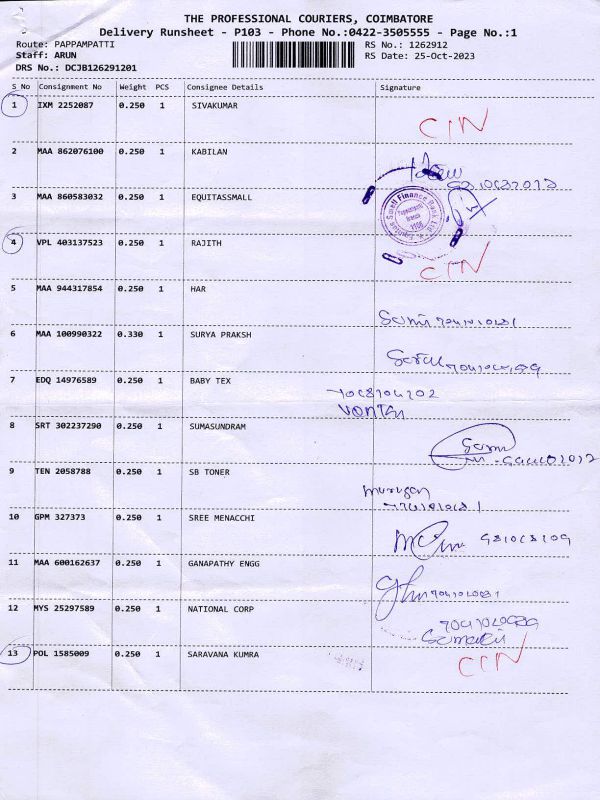 THE PROFESSIONAL COURIERS, COIMBATORE
Delivery Runsheet - P103 - Phone No.:0422-3505555 - Page No.:1
Route: PAPPAMPATTI RS No.: 1262912
Staff: ARUN RS Date: 25-Oct-2023
DRS No.: DCJB126291201
S_No Consignment No Weight PCS Consignee Details Signature
1 IXM 2252087 0.250 1 SIVAKUMAR
CIN
2 MAA 862076100 0.250 1 KABILAN
3 MAA 860583032 0.250 1 EQUITASSMALL
Small Finance Bank Ltd
4 VPL 403137523 0.250 1 RAJITH
CIN
5 MAA 944317854 0.250 1 HAR
6 MAA 100990322 0.330 1 SURYA PRAKSH
7 EDQ 14976589 0.250 1 BABY TEX
8 SRT 302237290 0.250 1 SUMASUNDRAM
9 TEN 2058788 0.250 1 SB TONER
murugan
10 GPM 327373 0.250 1 SREE MENACCHI
11 MAA 600162637 0.250 1 GANAPATHY ENGG
12 MYS 25297589 0.250 1 NATIONAL CORP
13 POL 1585009 0.250 1 SARAVANA KUMRA
CIN